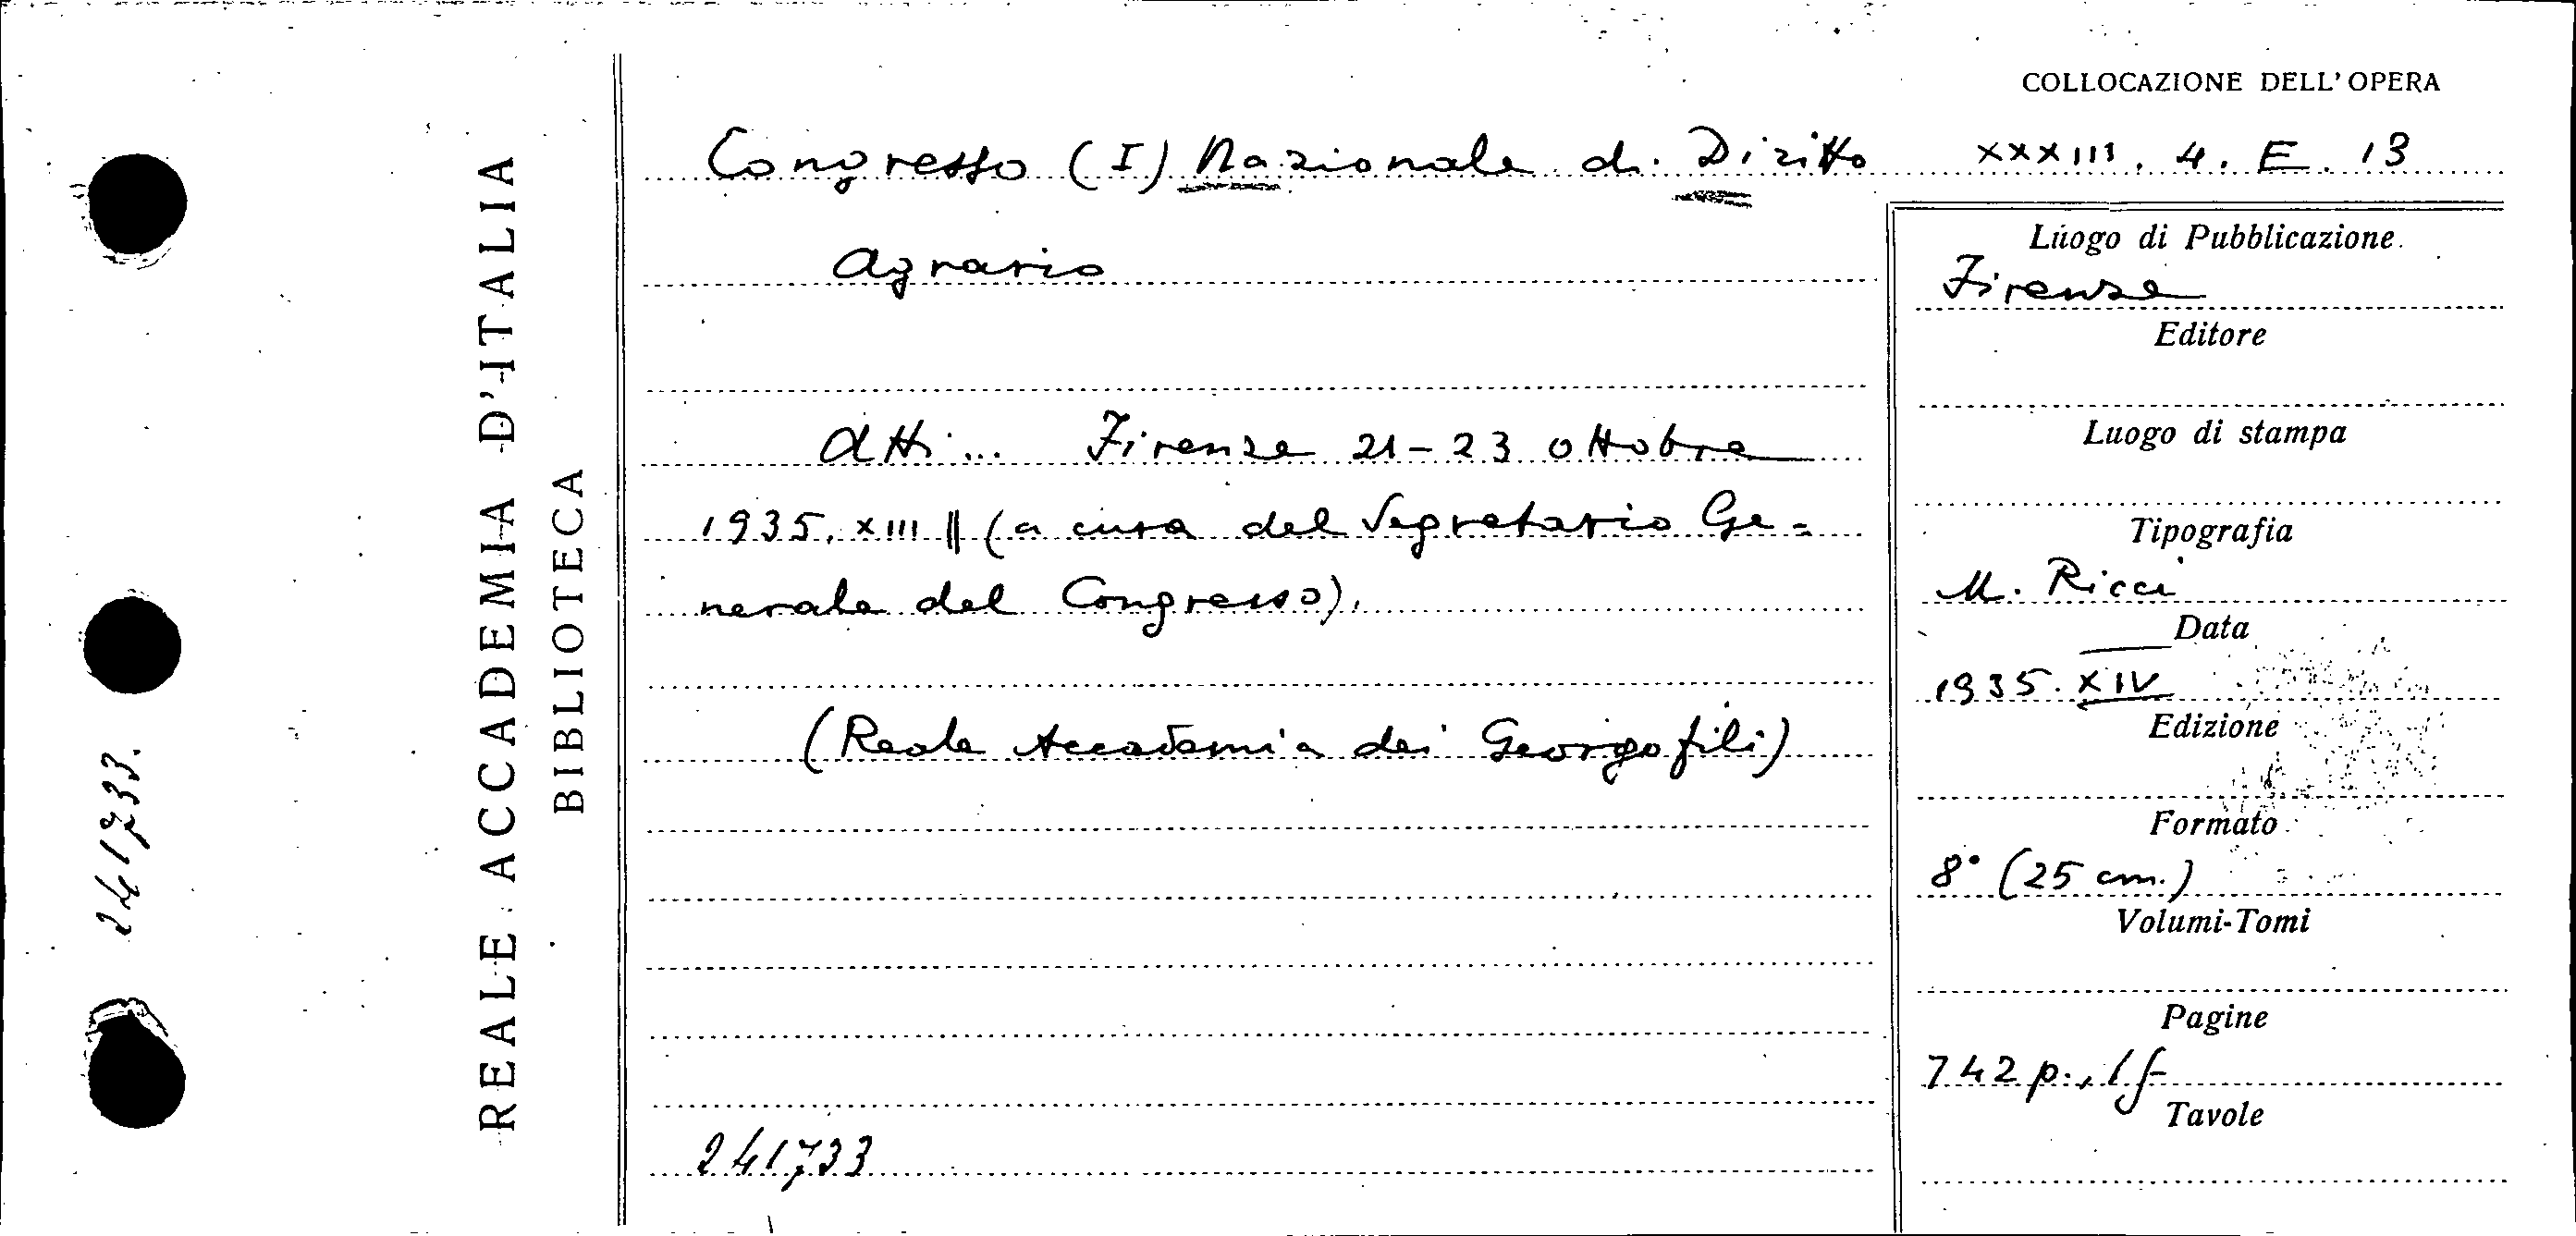 REALE ACCADEMIA D'ITALIA
BIBLIOTECA
241733.
COLLOCAZIONE DELL'OPERA
XXXIII. 4. E. 13
Congresso (I) Nazionale di Diritto
Agrario
Atti... Firenze 21-23 ottobre
1935. XIII || (a cura del Segretario Ge=
nerale del Congresso).
(Reale Accademia dei Georgofili)
241733
Luogo di Pubblicazione
Firenze
Editore
Luogo di stampa
Tipografia
M. Ricci
Data
1935. XIV
Edizione
Formato
8° (25 cm.)
Volumi-Tomi
Pagine
742 p., 1 f
Tavole